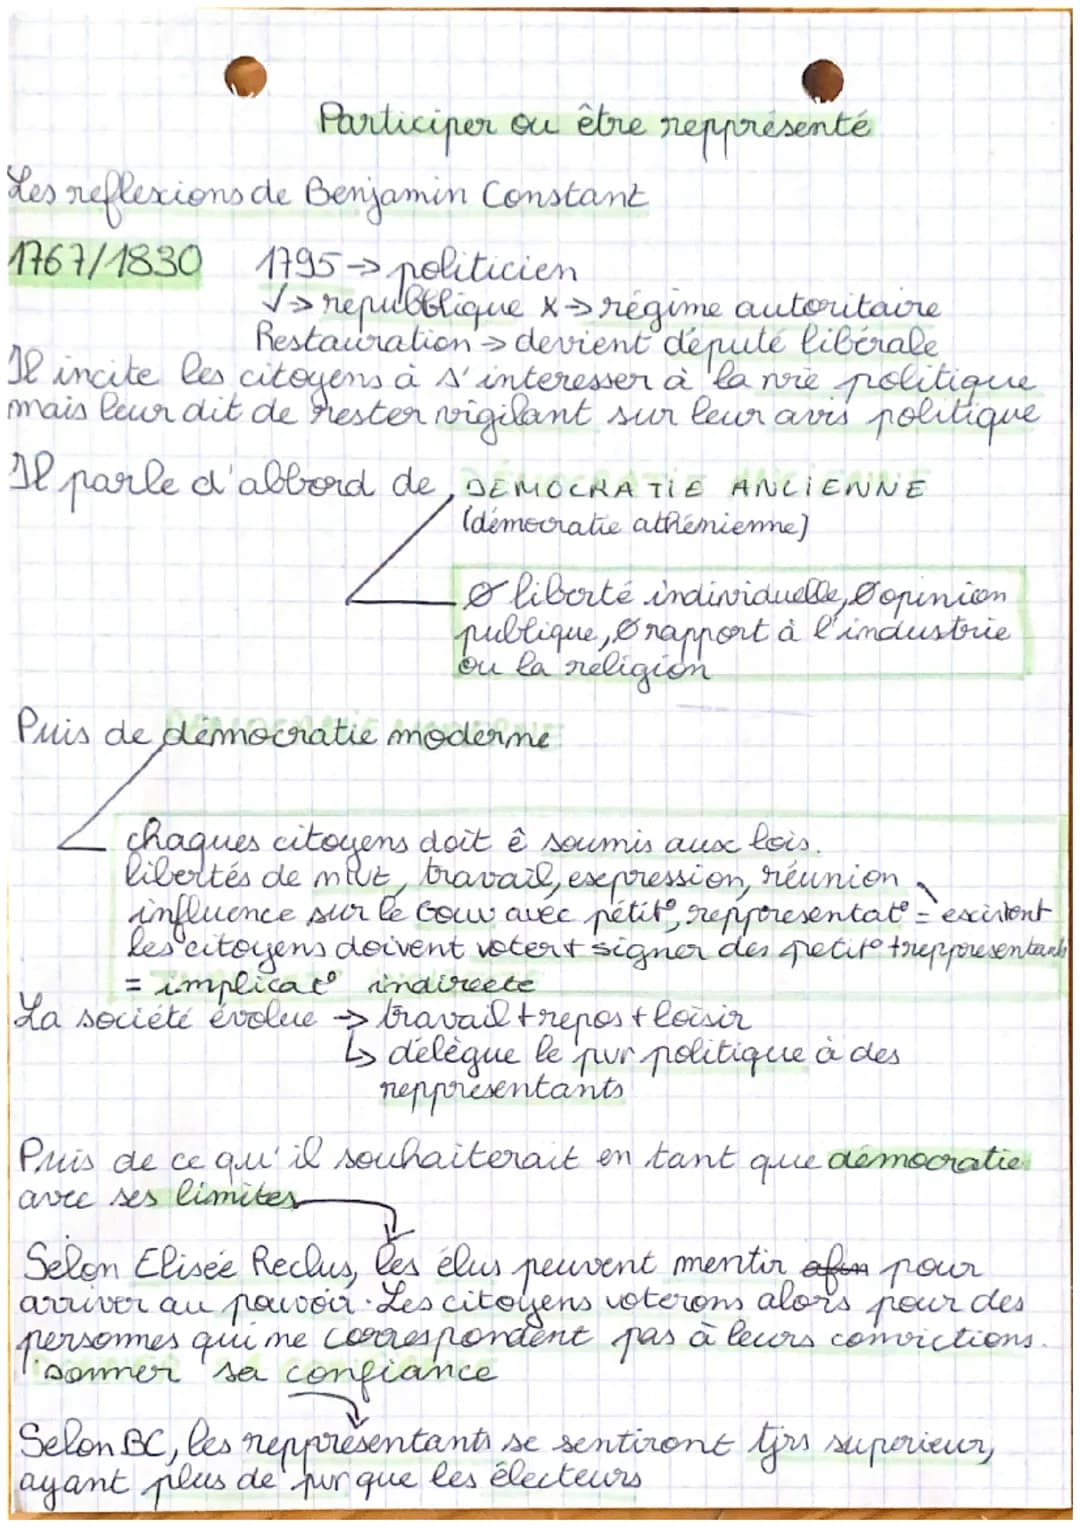 Participer ou être repprésenté
Les reflexions de Benjamin Constant
1767/1830 1795 → politicien
√→ republlique x→ régime autoritaire
Restauration → devient député libérale
Il incite les citoyens à s'interesser à la vie politique
mais leur dit de rester vigilant sur leur avis politique
Il parle d'abbord de DEMOCRATIE ANCIENNE
(démocratie athénienne)
Ø liberté individuelle, Ø opinion
publique, Ø rapport à l'industrie
ou la religion
Puis de démocratie moderne
chaques citoyens doit ê soumis aux lois.
libertés de mvt, travail, expression, réunion
influence sur le Gouv avec pétit°, repprésentat° = existent
les citoyens doivent voter + signer des petit° + repprésentants
= implicat° indirecte
La société évolue → travail + repos + loisir
↳ délègue le pvr politique à des
repprésentants
Puis de ce qu'il souhaiterait en tant que démocratie
avec ses limites
Selon Elisée Reclus, les élus peuvent mentir afin pour
arriver au pouvoir. Les citoyens voterons alors pour des
personnes qui ne correspondent pas à leurs convictions.
donner sa confiance
Selon BC, les repprésentants se sentiront tjrs superieur,
ayant plus de pvr que les électeurs